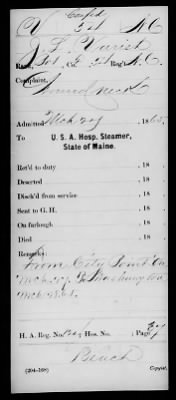 Confed
V 54 N.C.
J. F. Varist
Rank, Pvt, Co. F 54 Reg't N.C.
Complaint,
Wound neck
Admitted Mch 29, 1865.
To U. S. A. Hosp. Steamer,
State of Maine.
Ret'd to duty , 18
Deserted , 18
Disch'd from service , 18
Sent to G. H. , 18
On furlough , 18
Died , 18
Remarks:
From City Point Va
Mch 29 To Washington
Mch
H. A. Reg. No. ; Hos. No. ; Page 37
Beach
(204-108) Copyist.